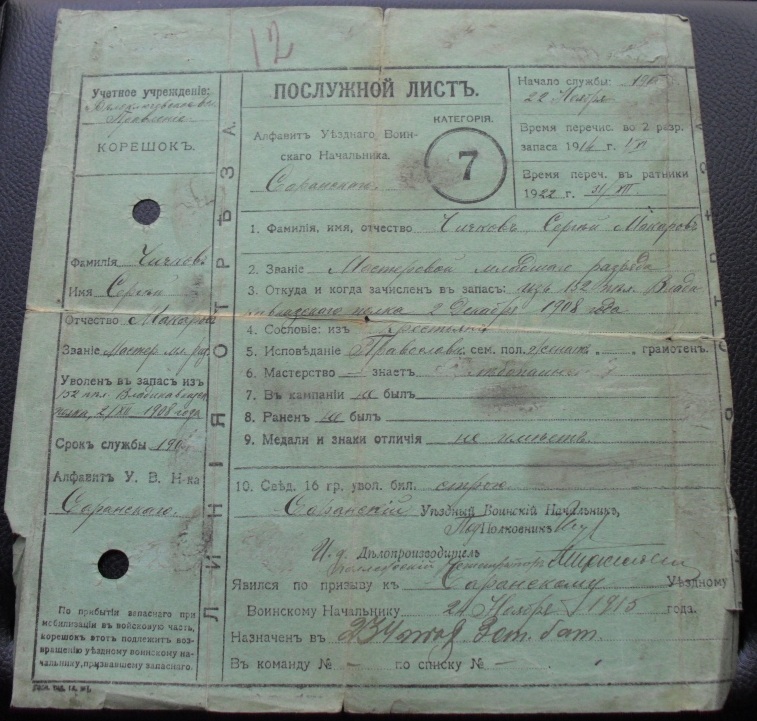 12
Учетное учрежденіе:
КОРЕШОКЪ.
Фамилія Чичковъ
Имя Сергѣй
Отчество Макаровъ
Званіе Мастер мл. раз
Уволенъ въ запасъ изъ
152 пѣх. Владикавказ
полка, 2/XII 1908 года
Срокъ службы 190
Алфавитъ У. В. Н-ка
Саранскаго.
По прибытіи запаснаго при
мобилизаціи въ войсковую часть,
корешокъ этотъ подлежитъ воз-
вращенію уѣздному воинскому на-
чальнику, призвавшему запаснаго.
ЛИНІЯ ОТРѢЗА.
ПОСЛУЖНОЙ ЛИСТЪ.
Алфавитъ Уѣзднаго Воин-
скаго Начальника.
Саранскаго.
КАТЕГОРІЯ.
7
Начало службы: 190
22 Ноября
Время перечис. во 2 разр.
запаса 1914 г.
Время переч. въ ратники
1922 г. 31/XII
1. Фамилія, имя, отчество Чичковъ Сергѣй Макаровъ
2. Званіе Мастеровой младшаго разряда
3. Откуда и когда зачисленъ въ запасъ: изъ 152 пѣх. Влади
кавказскаго полка 2 Декабря 1908 года
4. Сословіе: изъ Крестьянъ
5. Исповѣданіе Православн. сем. пол. женатъ грамотен.
6. Мастерство — знаетъ
7. Въ кампаніи не былъ
8. Раненъ не былъ
9. Медали и знаки отличія не имѣетъ.
10. Свѣд. 16 гр. увол. бил. строю
Саранскій Уѣздный Воинскій Начальникъ,
Подполковникъ
И. д. Дѣлопроизводитель
Коллежскій Регистраторъ
Явился по призыву къ Саранскому Уѣздному
Воинскому Начальнику 21 Ноября 1915 года.
Назначенъ въ 234 Зап. бат.
Въ команду № — по списку № —